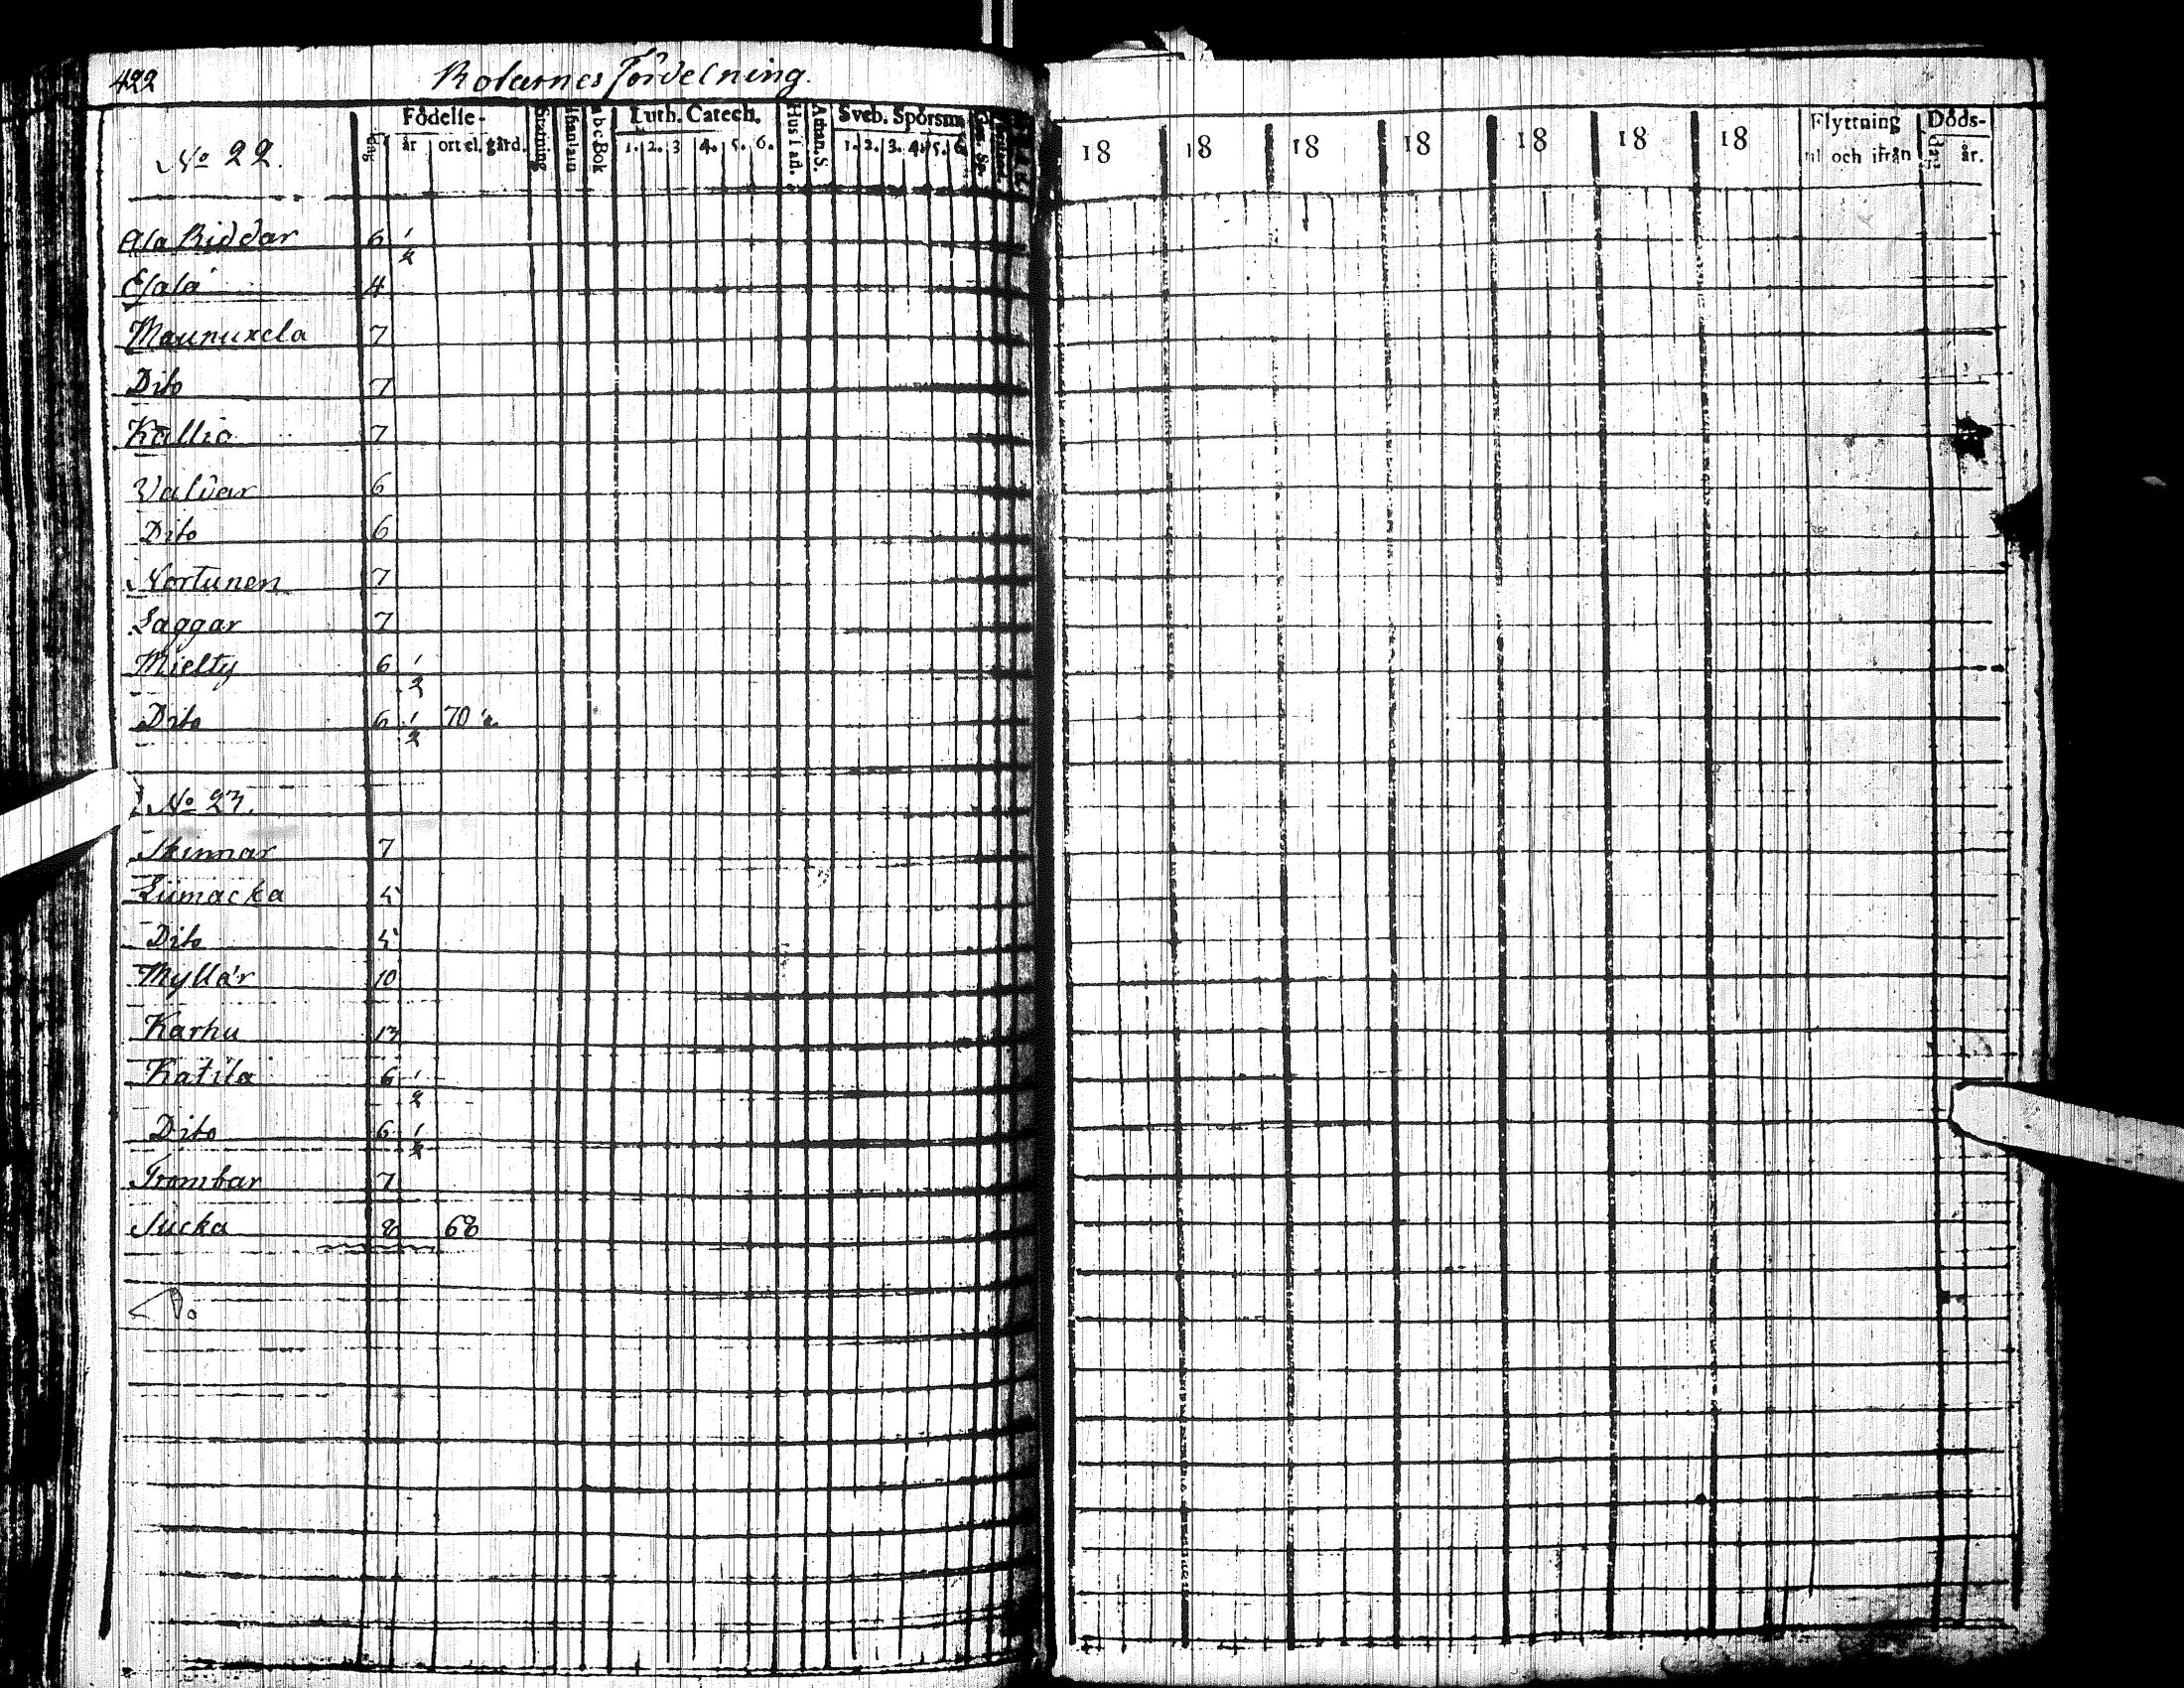 422 Rotarnes Fördelning.
No 22. Födelse- år ort el. gård. a b c Bok Luth. Catech. 1. 2. 3 4. 5. 6. Athan. S. Sveb. Spörsm. 1. 2. 3. 4. 5. 6 18 18 18 18 18 18 18 Flyttning til och ifrån Döds- år.
Ala Riddar 6 1/2
Esala 4
Maunuxela 7
Dito 7
Kallio 7
Valvar 6
Dito 6
Nortunen 7
Laggar 7
Mielty 6 1/2
Dito 6 1/2 70 1/2
No 23.
Skinnar 7
Liimacka 5
Dito 5
Myllär 10
Karhu 13
Katila 6 1/2
Dito 6 1/2
Trombar 7
Sucka 8 68
No